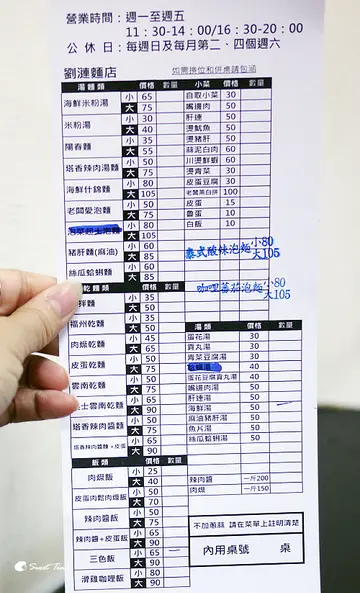 營業時間：週一至週五
11：30-14：00/16：30-20：00
公休日：每週日及每月第二、四個週六
劉漣麵店
如需換位和併桌請包涵
湯麵類 價格 數量
海鮮米粉湯 小 65
大 75
米粉湯 小 30
大 40
陽春麵 小 35
大 55
塔香辣肉湯麵 小 50
大 75
海鮮什錦麵 小 80
大 105
老闆愛泡麵 小 50
大 75
小 80
大 105
豬肝麵(麻油) 小 60
大 85
絲瓜蛤蜊麵 小 60
大 85
乾麵類 價格 數量
拌麵 小 35
大 50
福州乾麵 小 35
大 50
肉燥乾麵 小 45
大 65
皮蛋乾麵 小 50
大 75
雲南乾麵 小 50
大 75
士雲南乾麵 小 65
大 90
塔香辣肉醬麵 小 50
大 75
塔香辣肉醬麵+皮蛋 小 65
大 90
飯類 價格 數量
肉燥飯 小 25
大 40
皮蛋肉鬆肉燥飯 小 50
大 70
辣肉醬飯 小 50
大 75
辣肉醬+皮蛋飯 小 65
大 90
三色飯 小 65
大 90
滑雞咖哩飯 小 80
大 90
小菜 價格 數量
自取小菜 30
嘴邊肉 50
肝連 50
燙魷魚 50
燙豬肝 50
蒜泥白肉 60
川燙鮮蝦 60
燙青菜 30
皮蛋豆腐 30
老闆黑白拼 100
皮蛋 15
魯蛋 10
白飯 10
泰式酸辣泡麵 小80
大105
咖哩蕃茄泡麵 小80
大105
湯類 價格 數量
蛋花湯 30
貢丸湯 30
青菜豆腐湯 30
40
蛋花豆腐貢丸湯 40
嘴邊肉湯 50
肝連湯 50
海鮮湯 50
麻油豬肝湯 50
魚片湯 50
絲瓜蛤蜊湯 50
辣肉醬 一斤200
肉燥 一斤150
不加蔥蒜 請在菜單上註明清楚
內用桌號 桌